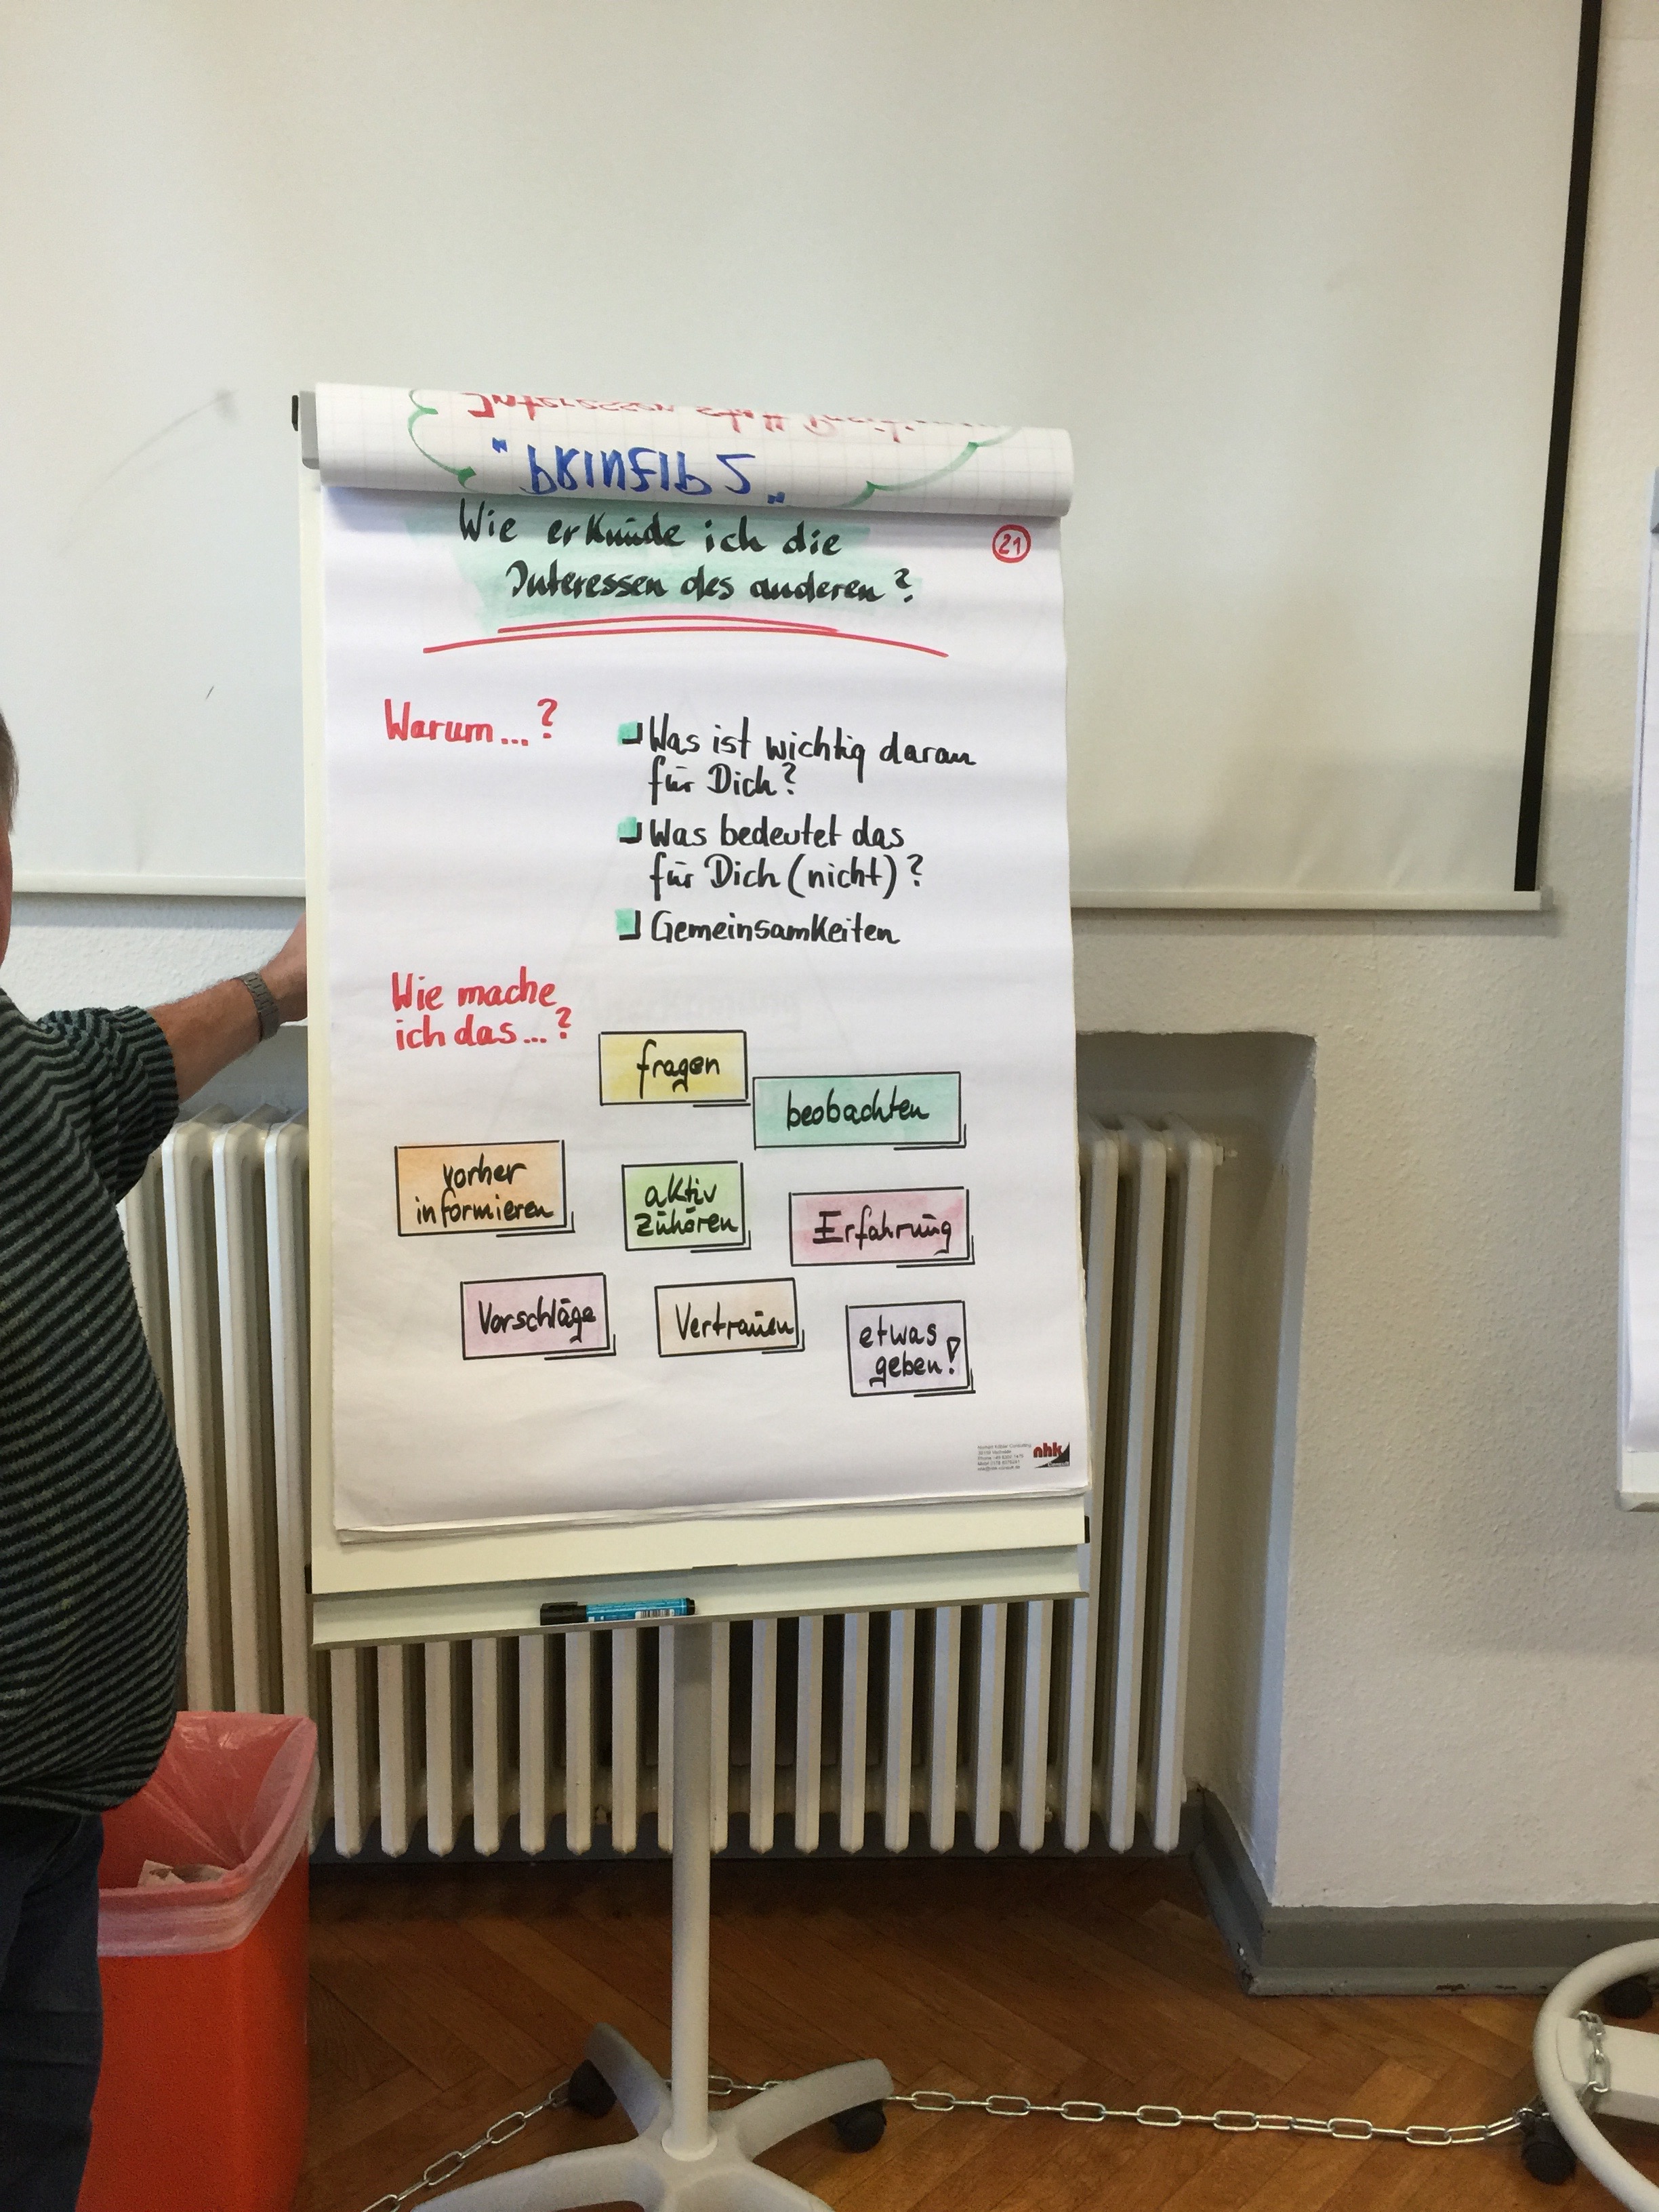 Interessen statt
"PRINZIP 2"
Wie erkunde ich die
Interessen des anderen?
21
Warum...?
Was ist wichtig daran
für Dich?
Was bedeutet das
für Dich (nicht)?
Gemeinsamkeiten
Wie mache
ich das...?
fragen
beobachten
vorher
informieren
aktiv
zuhören
Erfahrung
Vorschläge
Vertrauen
etwas
geben!
nhk